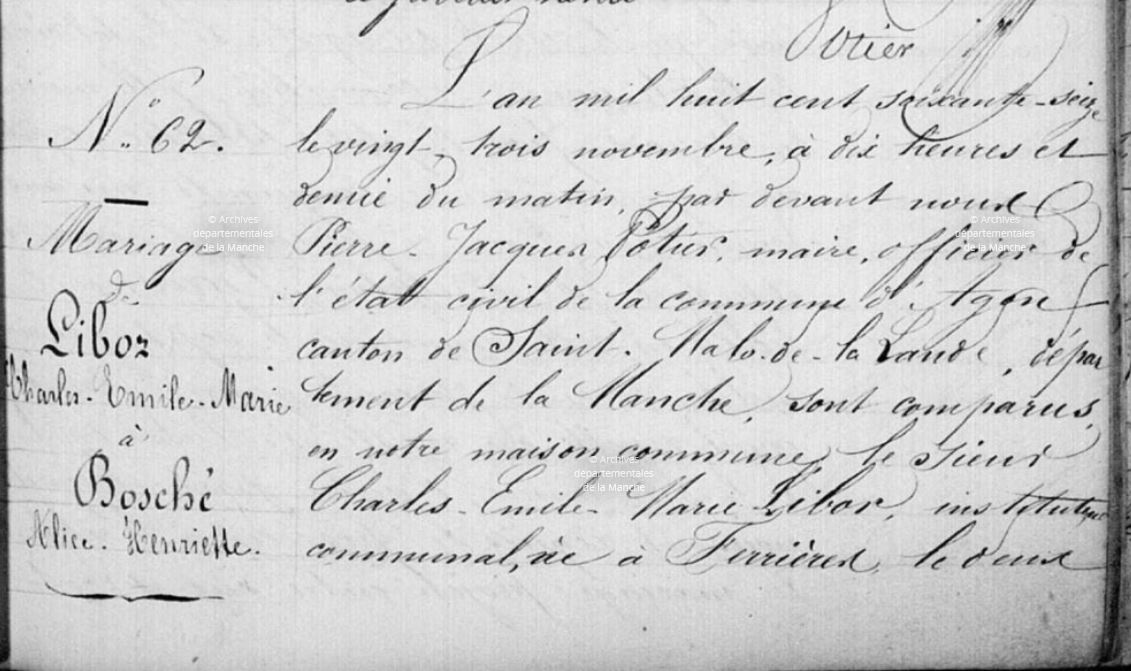 Potier
N° 62.
Mariage
de
Libor
Charles-Emile-Marie
à
Bosché
Alice-Henriette.
L'an mil huit cent soixante-seize
le vingt-trois novembre, à dix heures et
demie du matin, par devant nous
Pierre-Jacques Potier, maire, officier de
l'état civil de la commune d'Agon
canton de Saint-Malo-de-la-Lande, dépar
tement de la Manche, sont comparus,
en notre maison commune, le sieur
Charles-Emile-Marie Libor, instituteur
communal, né à Ferrières, le deux
© Archives
départementales
de la Manche
© Archives
départementales
de la Manche
© Archives
départementales
de la Manche